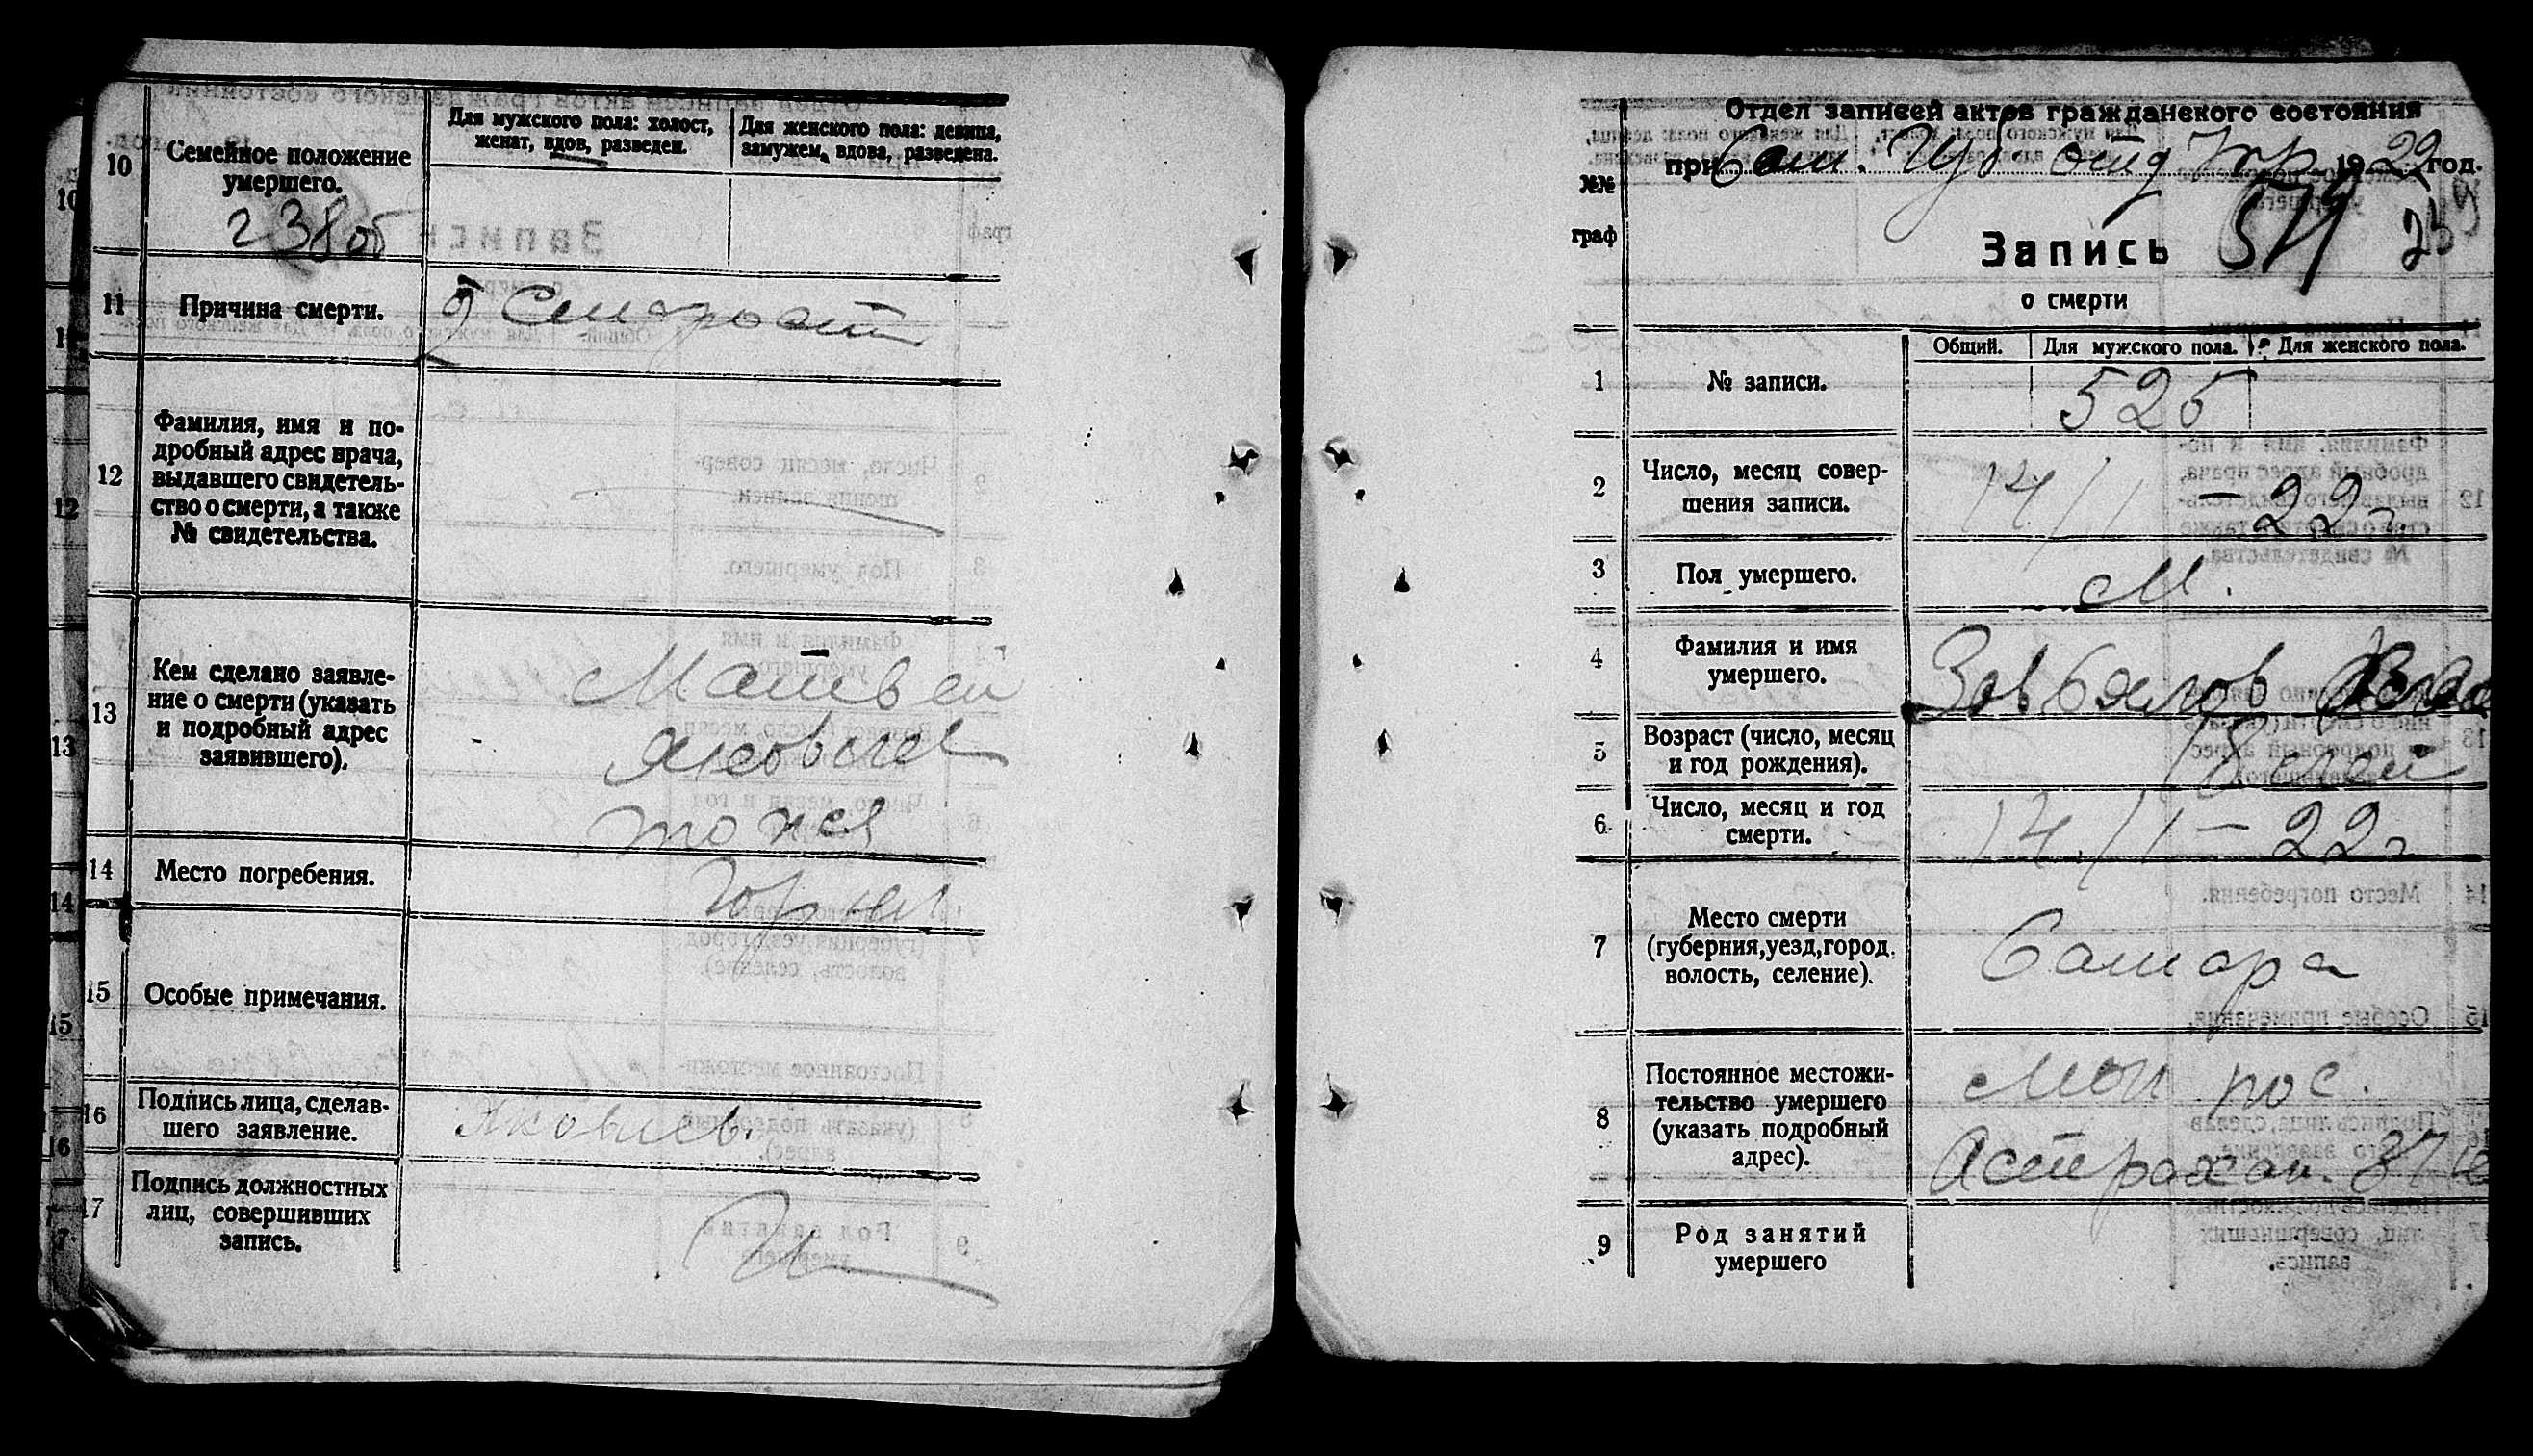 10
Семейное положение
умершего.
Для мужского пола: холост,
женат, вдов, разведен.
Для женского пола: девица,
замужем, вдова, разведена.
238об
11
Причина смерти.
12
Фамилия, имя и по-
дробный адрес врача,
выдавшего свидетель-
ство о смерти, а также
№ свидетельства.
13
Кем сделано заявле-
ние о смерти (указать
и подробный адрес
заявившего).
Матвей
Яковлев
14
Место погребения.
15
Особые примечания.
16
Подпись лица, сделав-
шего заявление.
Яковлев.
17
Подпись должностных
лиц, совершивших
запись.
Отдел записей актов гражданского состояния
при Сам. Губ отд Упр. 1922 год.
№№
граф
Запись
о смерти
Общий.
Для мужского пола.
Для женского пола.
1
№ записи.
525
2
Число, месяц совер-
шения записи.
14/I — 22 г.
3
Пол умершего.
М.
4
Фамилия и имя
умершего.
5
Возраст (число, месяц
и год рождения).
6
Число, месяц и год
смерти.
14/I — 22 г
7
Место смерти
(губерния, уезд, город,
волость, селение).
Самара
8
Постоянное местожи-
тельство умершего
(указать подробный
адрес).
Астрахан. 87
9
Род занятий
умершего